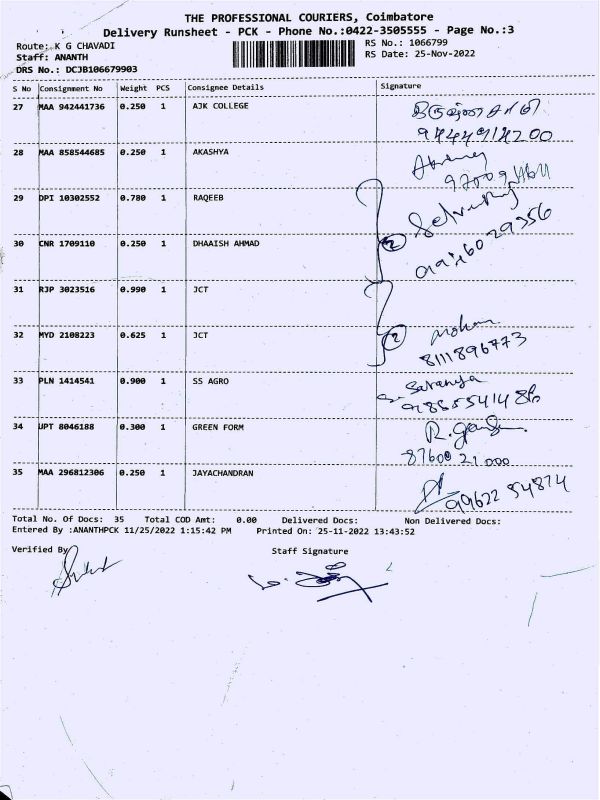 THE PROFESSIONAL COURIERS, Coimbatore
Delivery Runsheet - PCK - Phone No.:0422-3505555 - Page No.:3
Route: K G CHAVADI
RS No.: 1066799
Staff: ANANTH
RS Date: 25-Nov-2022
DRS No.: DCJB106679903
S No Consignment No Weight PCS Consignee Details Signature
27 MAA 942441736 0.250 1 AJK COLLEGE
28 MAA 858544685 0.250 1 AKASHYA
29 DPI 10302552 0.780 1 RAQEEB
30 CNR 1709110 0.250 1 DHAAISH AHMAD 2
31 RJP 3023516 0.990 1 JCT
32 MYD 2108223 0.625 1 JCT 2 mohan
8111896773
33 PLN 1414541 0.900 1 SS AGRO Saranya
34 UPT 8046188 0.300 1 GREEN FORM
87600 21000
35 MAA 296812306 0.250 1 JAYACHANDRAN
99622 54874
Total No. Of Docs: 35 Total COD Amt: 0.00 Delivered Docs: Non Delivered Docs:
Entered By :ANANTHPCK 11/25/2022 1:15:42 PM Printed On: 25-11-2022 13:43:52
Verified By
Staff Signature